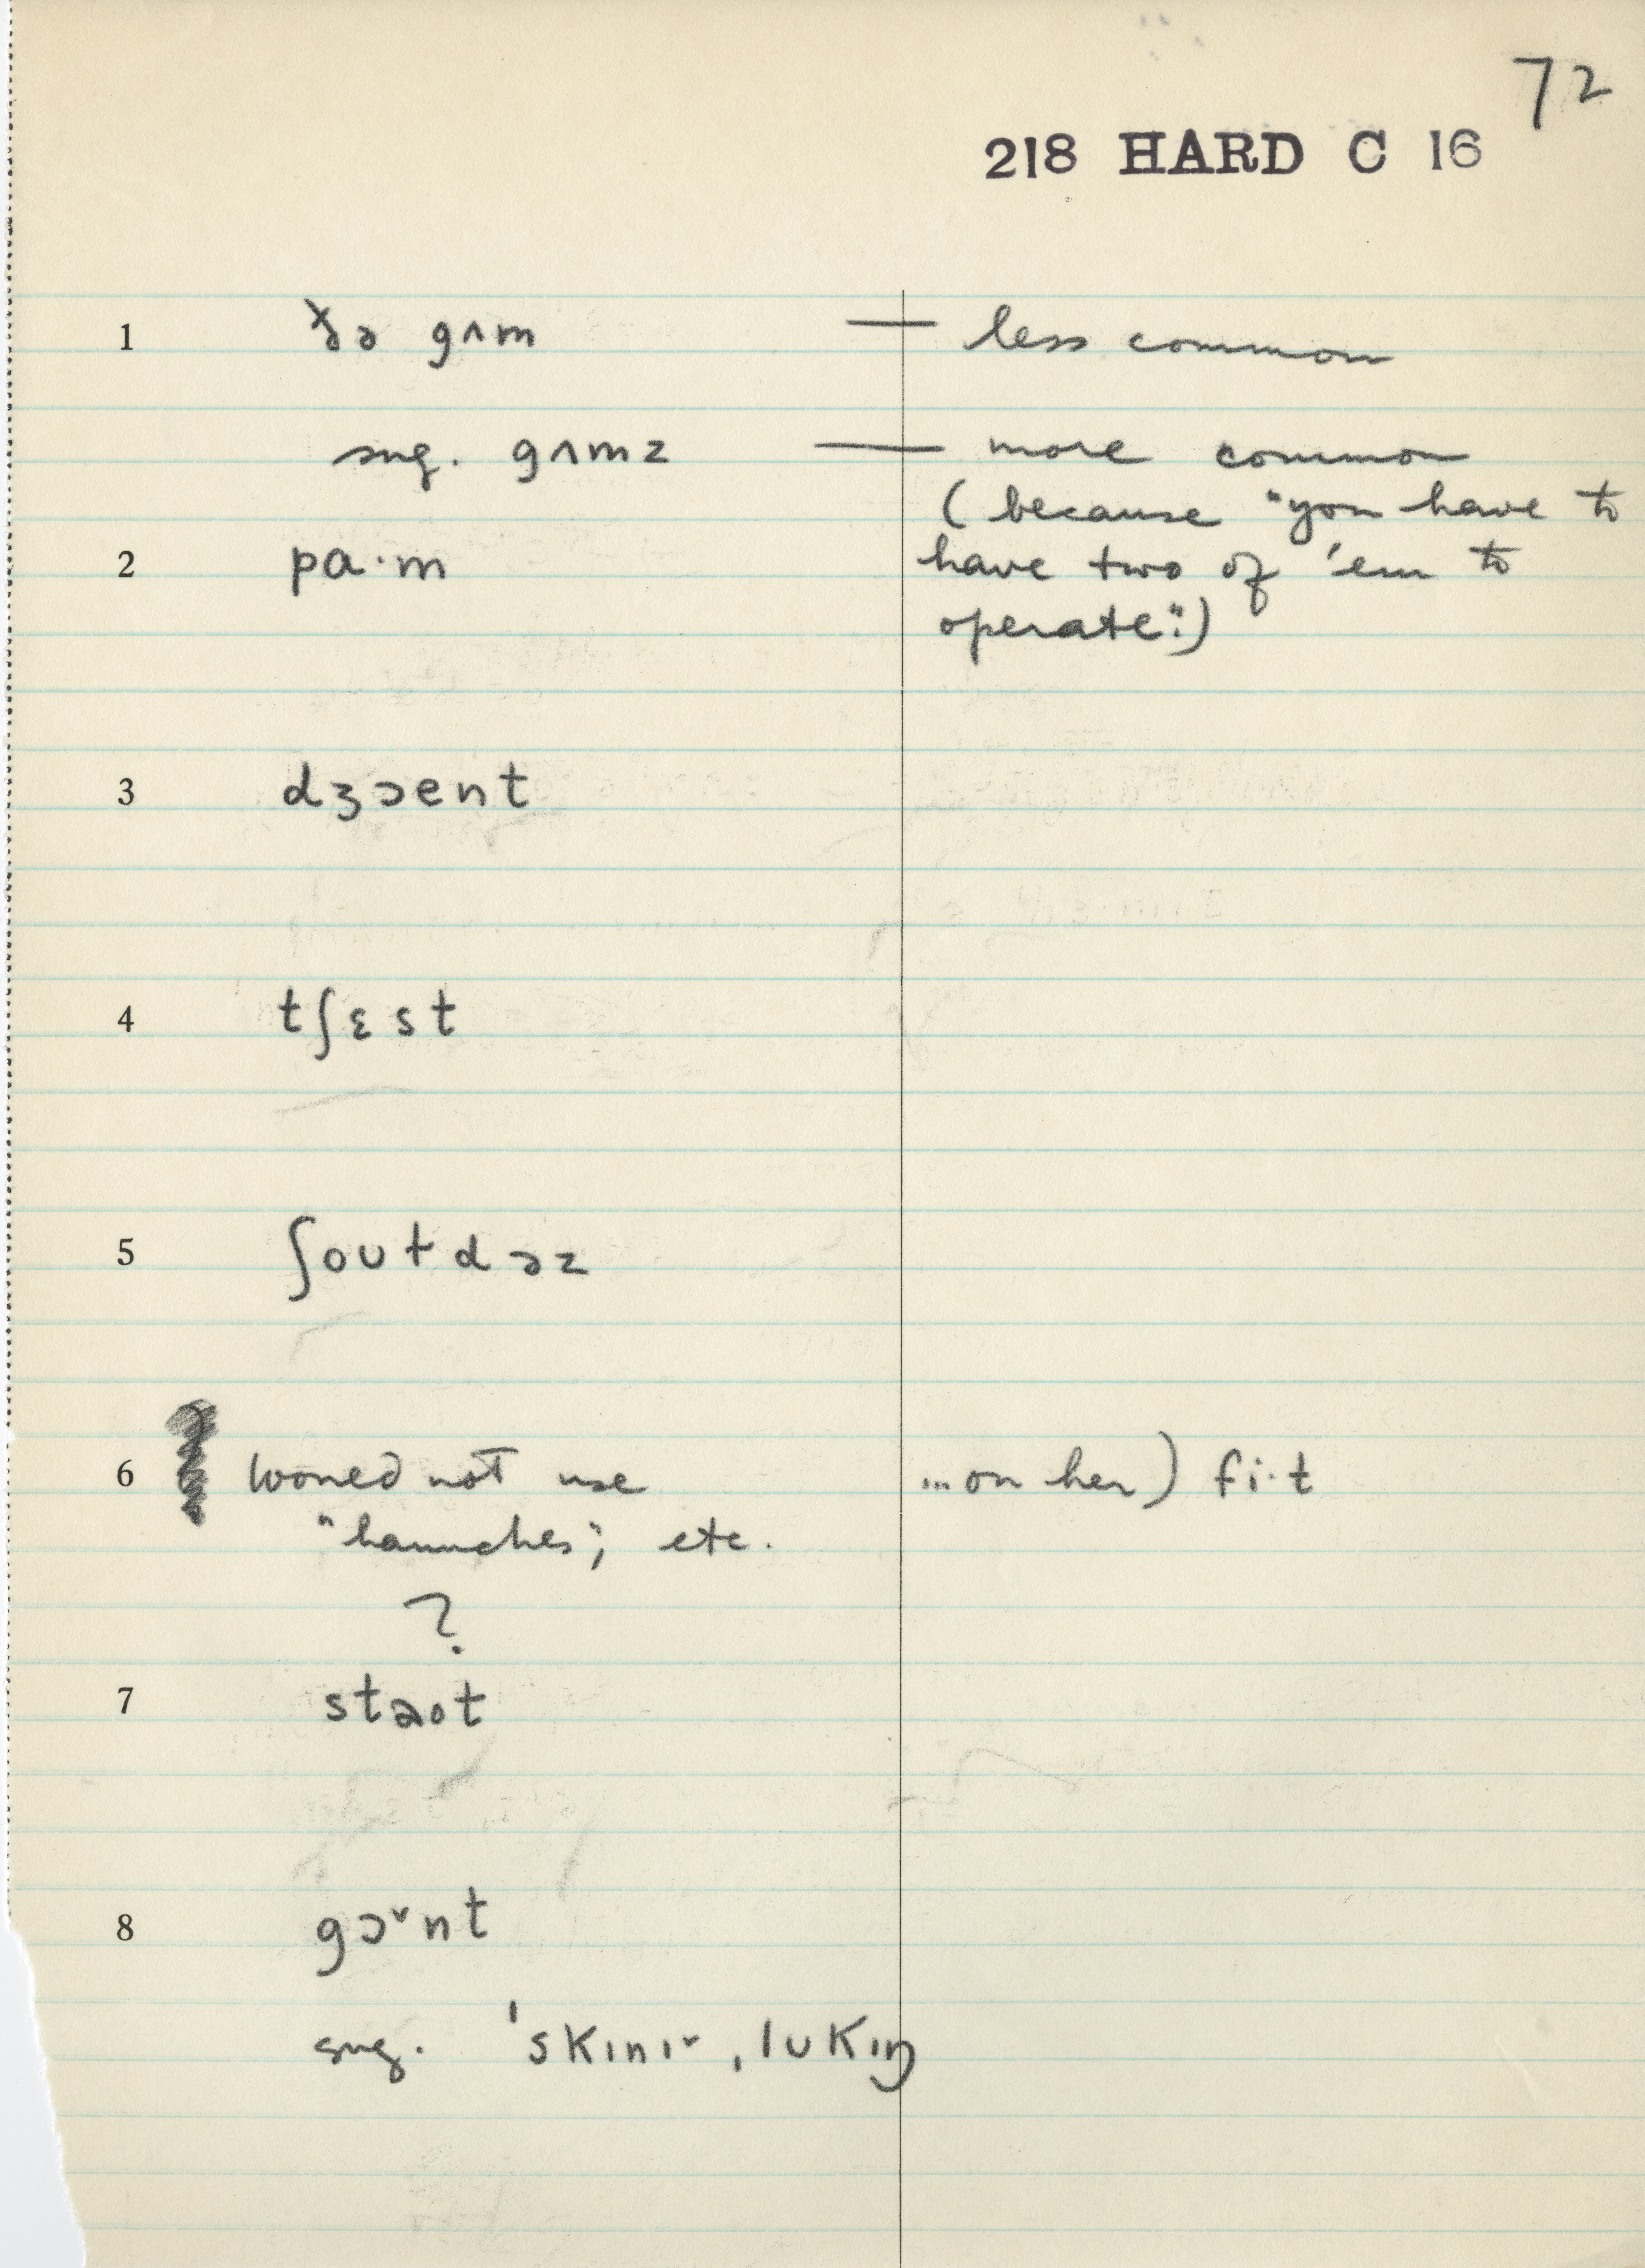 72
218 HARD C 16
1 ðə gʌm — less common
sug. gʌmz — more common
(because "you have to
2 pɑ·m have two of 'em to
operate".)
3 dʒɔent
4 tʃɛst
5 ʃoʊtdəz
6 not use ...on her) fi·t
"haunches", etc.
?
7 staot
8 gɔˇnt
sug. ˈskɪnɪˇ ˌlʊkɪŋ